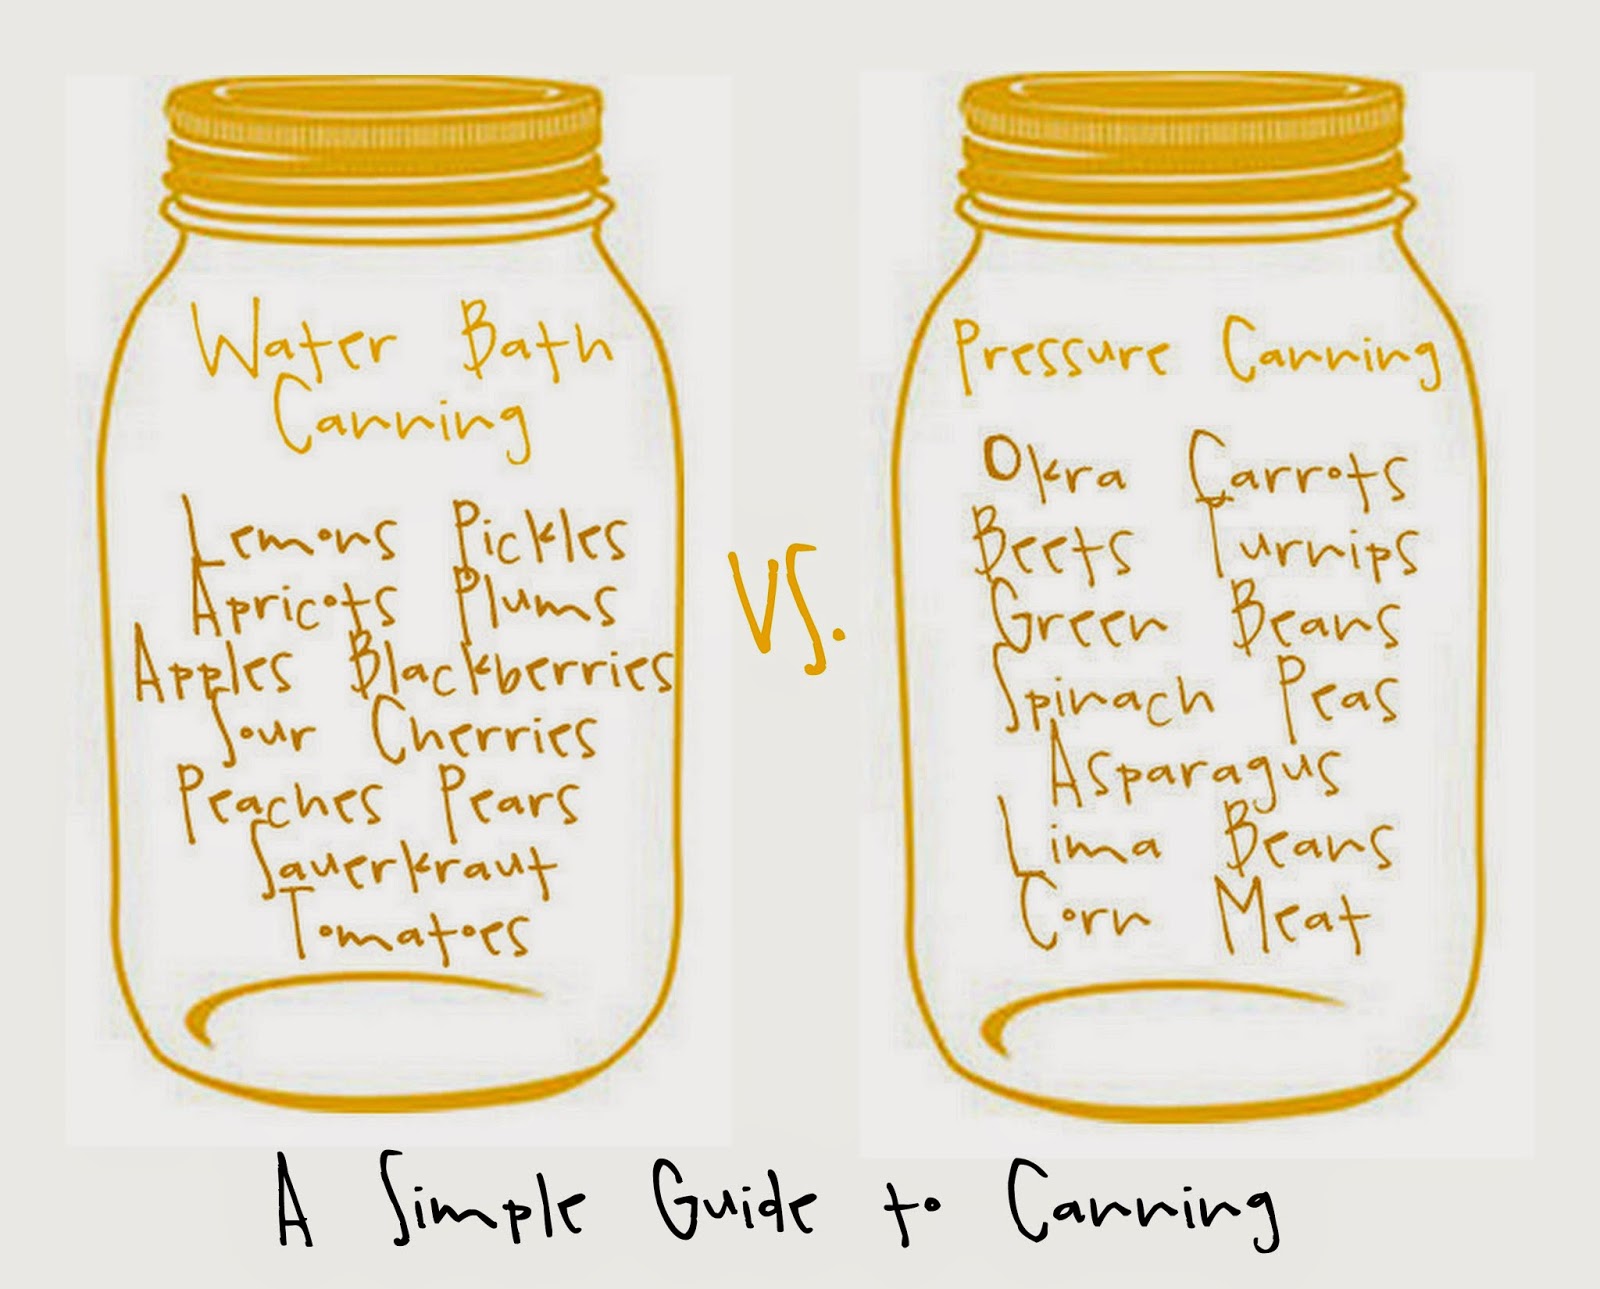 Water Bath
Canning
Lemons Pickles
Apricots Plums
Apples Blackberries
Sour Cherries
Peaches Pears
Sauerkraut
Tomatoes
VS.
Pressure Canning
Okra Carrots
Beets Turnips
Green Beans
Spinach Peas
Asparagus
Lima Beans
Corn Meat
A Simple Guide to Canning